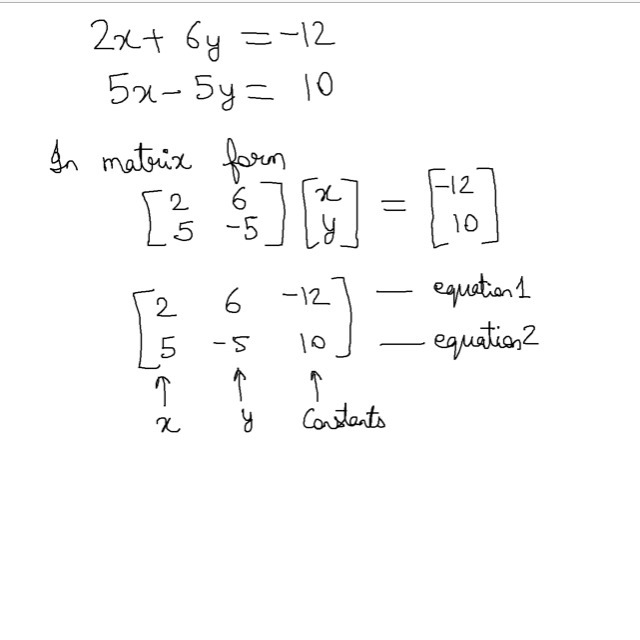 2x + 6y = -12
5x - 5y = 10
In matrix form
[2 6] [x] = [-12]
[5 -5] [y] [10]
[2 6 -12] — equation 1
[5 -5 10] — equation 2
↑ ↑ ↑
x y Constants